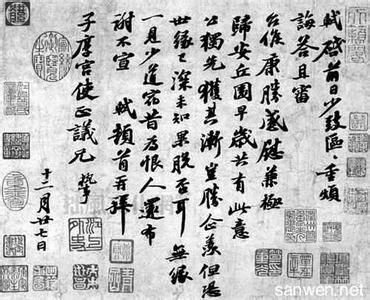 軾啓前日少致區區重煩
誨答且審
台候康勝感慰兼極
歸安丘園早歲共有此意
公獨先獲其漸豈勝企羨但恐
世緣已深未知果脫否耳無緣
一見少道宿昔為恨人還布
謝不宣 軾頓首再拜
子厚宮使正議兄執事
十二月廿七日
sanwen.net